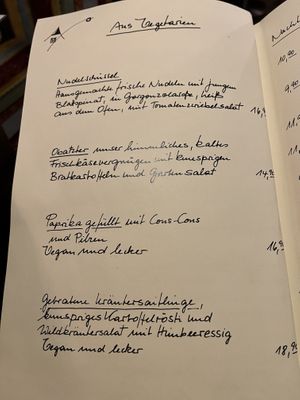 Aus Vegetarien
Nudelschüssel
Hausgemachte frische Nudeln mit jungen
Blattspinat, in Gorgonzolasoße, heiß
aus dem Ofen, mit Tomatenzwiebelsalat
Obatzter unser himmlisches, kaltes
Frischkäsevergnügen mit knusprigen
Bratkartoffeln und Gartensalat 14,90
Paprika gefüllt mit Cous-Cous
und Pilzen
Vegan und lecker 16,90
Gebratene Kräutersaitlinge,
knuspriges Kartoffelrösti und
Wildkräutersalat mit Himbeeressig
Vegan und lecker 18,90
10,90